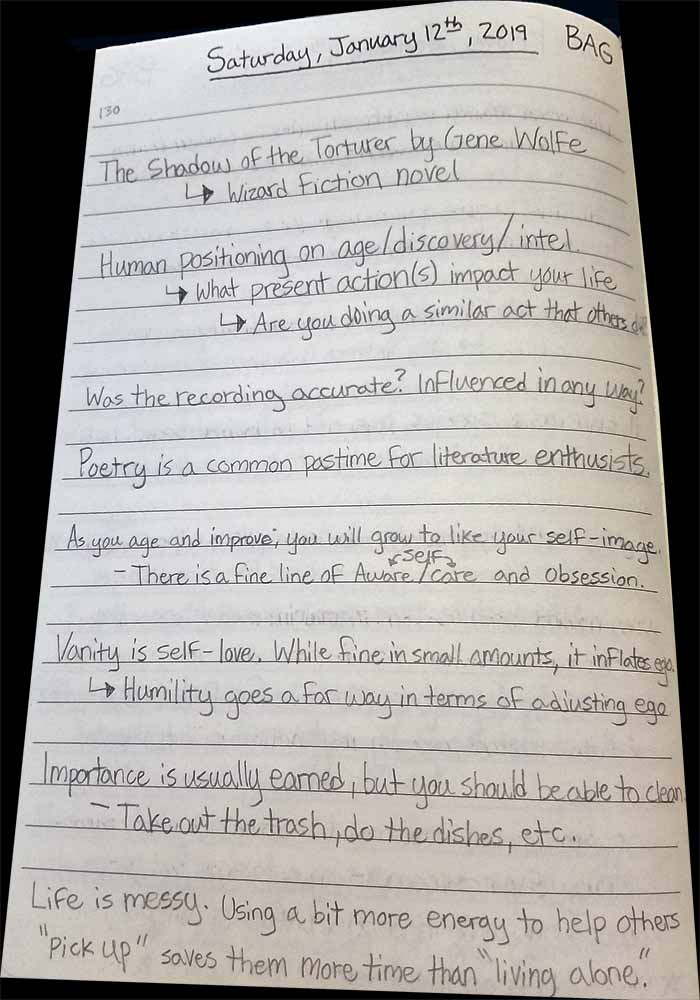 Saturday, January 12th, 2019 BAG
130
The Shadow of the Torturer by Gene Wolfe
↳ Wizard Fiction novel
Human positioning on age/discovery/intel
↳ What present action(s) impact your life
↳ Are you doing a similar act that others do?
Was the recording accurate? Influenced in any way?
Poetry is a common pastime for literature enthusists.
As you age and improve, you will grow to like your self-image.
self
- There is a fine line of Aware/care and Obsession.
Vanity is self-love. While fine in small amounts, it inflates ego.
↳ Humility goes a far way in terms of adjusting ego
Importance is usually earned, but you should be able to clean
- Take out the trash, do the dishes, etc.
Life is messy. Using a bit more energy to help others
"Pick up" saves them more time than "living alone."